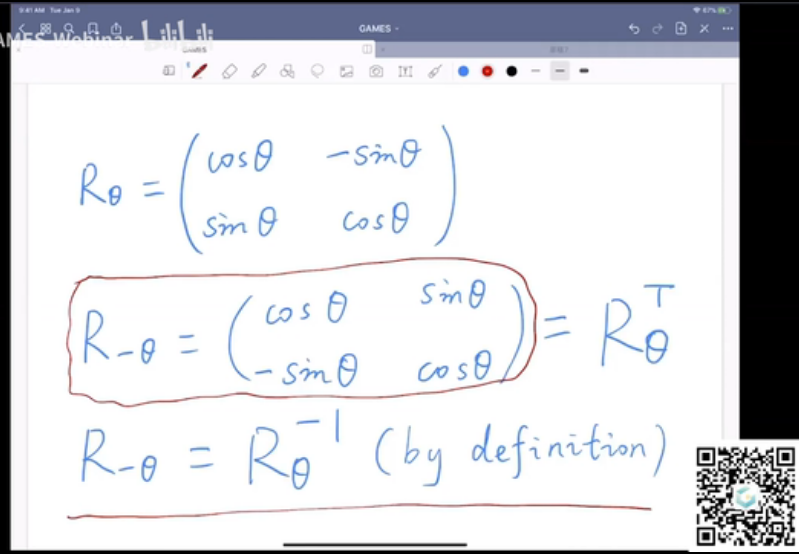 9:41 AM Tue Jan 9
67%
GAMES
AMES Webinar
GAMES
Rθ = (cosθ -sinθ
sinθ cosθ)
R-θ = (cosθ sinθ
-sinθ cosθ) = Rθ^T
R-θ = Rθ^-1 (by definition)